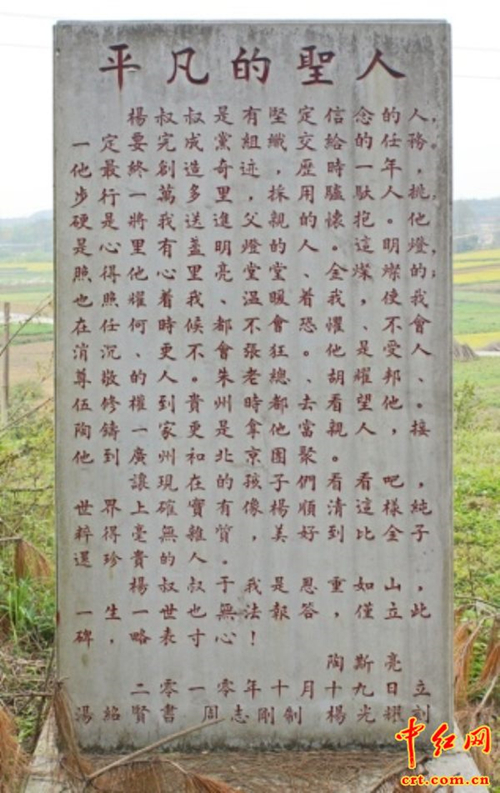 平凡的聖人
楊叔叔是有堅定信念的人，
一定要完成黨組織交給的任務。
他最終創造奇迹，歷時一年。
步行一萬多里，採用驢馱人挑，
硬是將我送進父親的懷抱。他
是心里有盖明燈的人。這明燈
照得他心里亮堂堂、全燦燦的
也照耀着我、溫暖着我，使我
在任何時候都不會恐懼、不會
消沉、更不會張狂。他是受人
尊敬的人。朱老總、胡耀邦、
伍修權到貴州時都去看望他。
陶鑄一家更是拿他富親人，接
他到廣州和北京團聚。
讓現在的孩子們看看吧，
世界上確實有像楊順清這樣純
粹得毫無雜質，美好到比金子
還珍貴的人。
楊叔叔于我是恩重如山，
一生一世也無法報答，僅立此
碑，略表寸心！
陶斯亮
二零一零年十月十九日立
湯紹賢書 周志剛制 楊光耀刻
中红网
crt.com.cn